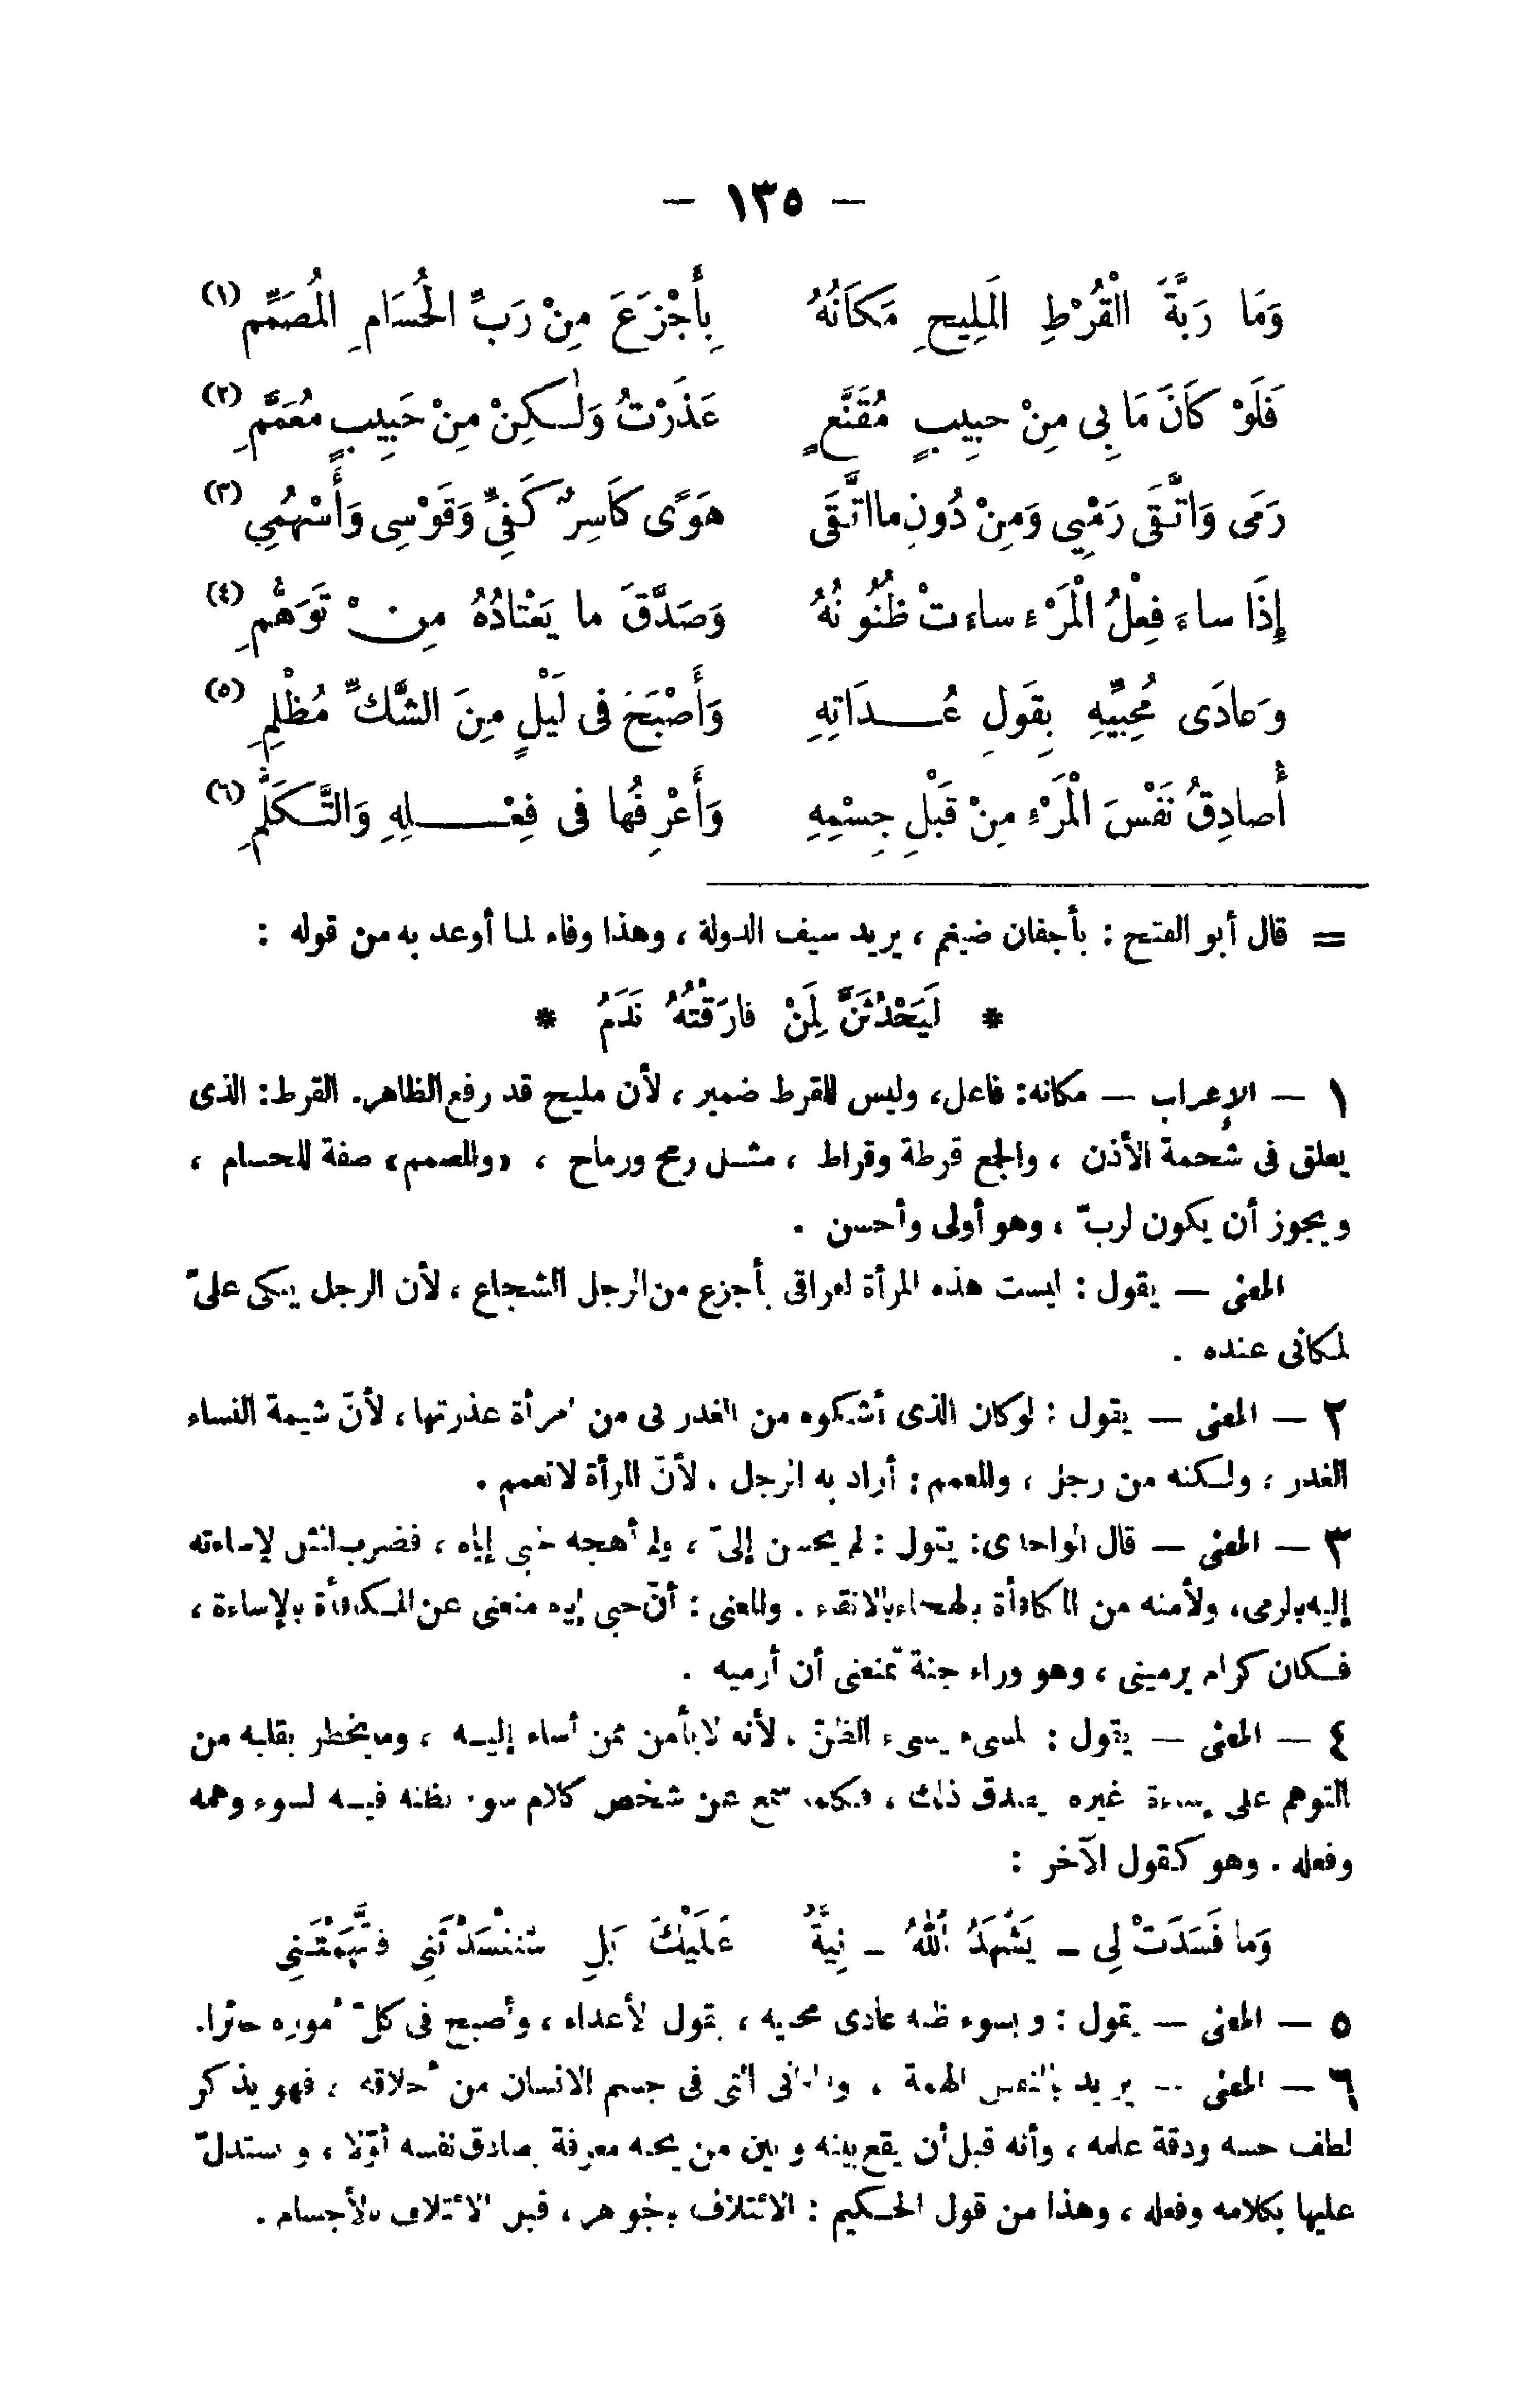 — ١٣٥ —
وَمَا رَبَّةُ الْقُرْطِ الْمَلِيحِ مَكَانُهُ بِأَجْزَعَ مِنْ رَبِّ الْحُسَامِ الْمُصَمِّمِ (١)
فَلَوْ كَانَ مَا بِي مِنْ حَبِيبٍ مُقَنَّعٍ عَذَرْتُ وَلٰكِنْ مِنْ حَبِيبٍ مُعَمَّمِ (٢)
رَمَى وَاتَّقَى رَمْيِي وَمِنْ دُونِ مااتَّقَى هَوًى كَاسِرٌ كَفِّي وَقَوْسِى وَأَسْهُمِي (٣)
إِذَا ساءَ فِعْلُ الْمَرْءِ ساءَتْ ظُنُونُهُ وَصَدَّقَ ما يَعْتَادُهُ مِنْ تَوَهُّمِ (٤)
وَعادَى مُحِبِّيهِ بِقَولِ عُدَاتِهِ وَأَصْبَحَ فى لَيْلٍ مِنَ الشَّكِّ مُظْلِمِ (٥)
أُصادِقُ نَفْسَ الْمَرْءِ مِنْ قَبْلِ جِسْمِهِ وَأَعْرِفُها فى فِعْلِهِ وَالتَّكَلُّمِ (٦)
= قال أبو الفتح : بأجفان ضيغم ، يريد سيف الدولة ، وهذا وفاء لما أوعد به من قوله :
* لَيَحْدُثَنَّ لِمَنْ فارَقْتُهُ نَدَمُ *
١ — الإعراب — مكانه: فاعل، وليس للقرط ضمير ، لأن مليح قد رفع الظاهر. القرط: الذى
يعلق فى شحمة الأذن ، والجمع قرطة وقراط ، مثل رمح ورماح ، «والمصمم» صفة للحسام ،
ويجوز أن يكون لربّ ، وهو أولى وأحسن .
المعنى — يقول : ليست هذه المرأة لفراقى بأجزع من الرجل الشجاع ، لأن الرجل يبكى علىّ
لمكانى عنده .
٢ — المعنى — يقول : لوكان الذى أشكوه من الغدر لى من امرأة عذرتها ، لأنّ شيمة النساء
الغدر ، ولكنه من رجل ، والمعمم : أراد به الرجل . لأنّ المرأة لا تعمم .
٣ — المعنى — قال الواحدى: يقول : لم يحسن إلىّ ، ولم أهجه لحبى إياه ، فضرب المثل لإساءته
إليه بالرمى، ولأمنه من المكافأة بالهجاء بالاتقاء . والمعنى : أنّ حبى إياه منعنى عن المكافأة بالإساءة ،
فكان كرام يرمينى ، وهو وراء جنة تمنعنى أن أرميه .
٤ — المعنى — يقول : المسىء يسىء الظنّ . لأنه لا يأمن ممن أساء إليه ، وما يخطر بقلبه من
التوهم على غيره يصدق ذلك ، فكلما سمع عن شخص كلام سوء يظنه فيه لسوء وهمه
وفعله . وهو كقول الآخر :
وَما فَسَدَتْ لِى — يَشْهَدُ اللهُ — نِيةٌ عَلَيْكَ بَلِ
٥ — المعنى — يقول : وبسوء ظنه عادى محبيه ، بقول لأعداء ، وأصبح فى كلّ أموره حائرا.
٦ — المعنى — يريد بالنفس الهمة ، والمعانى التى فى جسم الانسان من أخلاقه ، فهو يذكر
لطف حسه ودقة علمه ، وأنه قبل أن يقع بينه وبين من يحبه معرفة يصادق نفسه أوّلا ، ويستدلّ
عليها بكلامه وفعله ، وهذا من قول الحكيم : الائتلاف بالجواهر ، قبل الائتلاف بالأجسام .